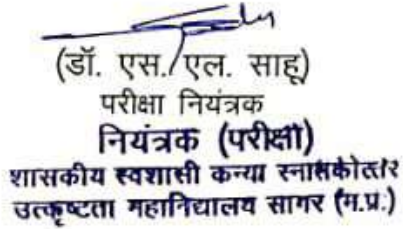 (डॉ. एस. एल. साहू)
परीक्षा नियंत्रक
नियंत्रक (परीक्षा)
शासकीय स्वशासी कन्या स्नातकोत्तर
उत्कृष्टता महाविद्यालय सागर (म.प्र.)